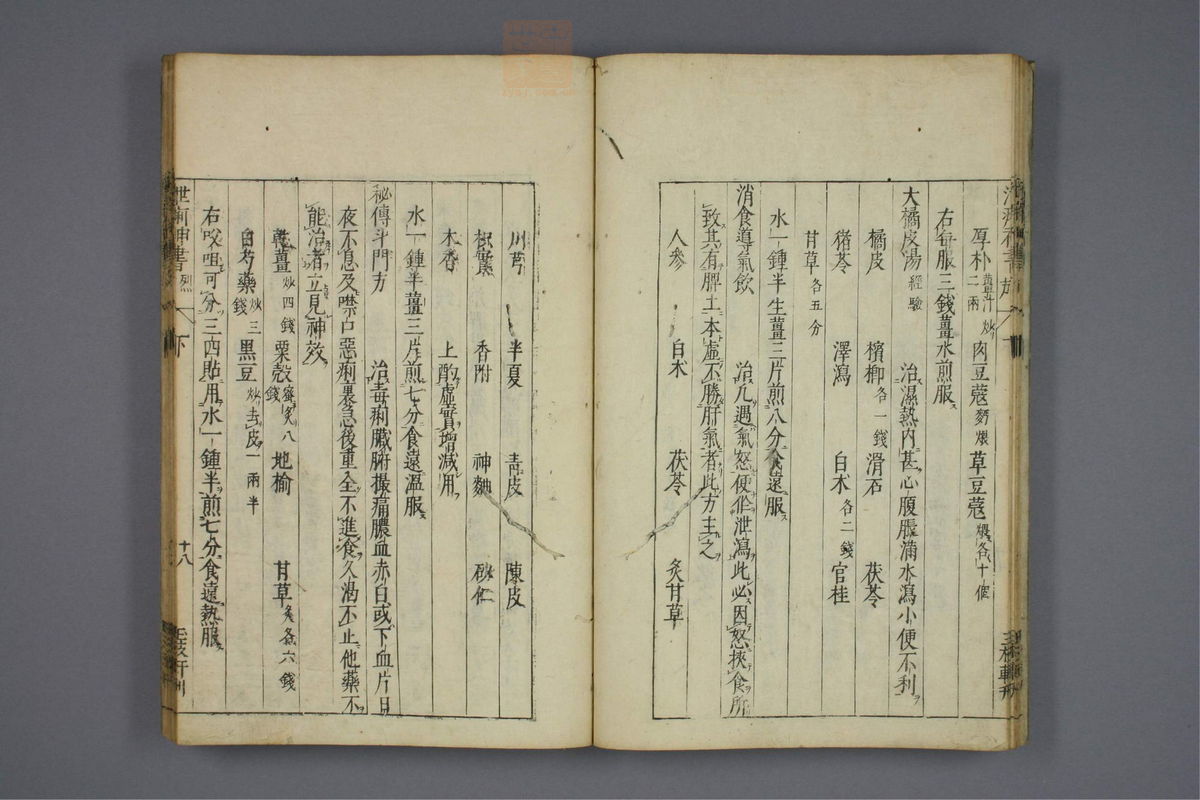 厚朴薑汁炒二兩 肉豆蔻麪煨 草豆蔻煨各十個
右每服三錢薑水煎服
大橘皮湯經驗 治濕熱內甚心腹脹滿水瀉小便不利
橘皮 檳榔各一錢 滑石 茯苓
猪苓 澤瀉 白朮各二錢 官桂
甘草各五分
水一鍾半生薑三片煎八分食遠服
消食導氣飲 治凡遇氣怒便作泄瀉此必因怒挾食所
致其有脾土本虛不勝肝氣者此方主之
人參 白朮 茯苓 炙甘草
川芎 半夏 青皮 陳皮
枳實 香附 神麯 砂仁
木香 上酌虛實增減用
水一鍾半薑三片煎七分食遠溫服
秘傳斗門方 治毒痢臟腑撮痛膿血赤白或下血片日
夜不息及噤口惡痢裏急後重全不進食久渴不止他藥不
能治者立見神效
乾薑炒四錢 粟殼蜜炙八錢 地榆 甘草炙各六錢
白芍藥炒三錢 黑豆炒去皮一兩半
右㕮咀可分三四貼用水一鍾半煎七分食遠熱服
神書 烈 下 十八